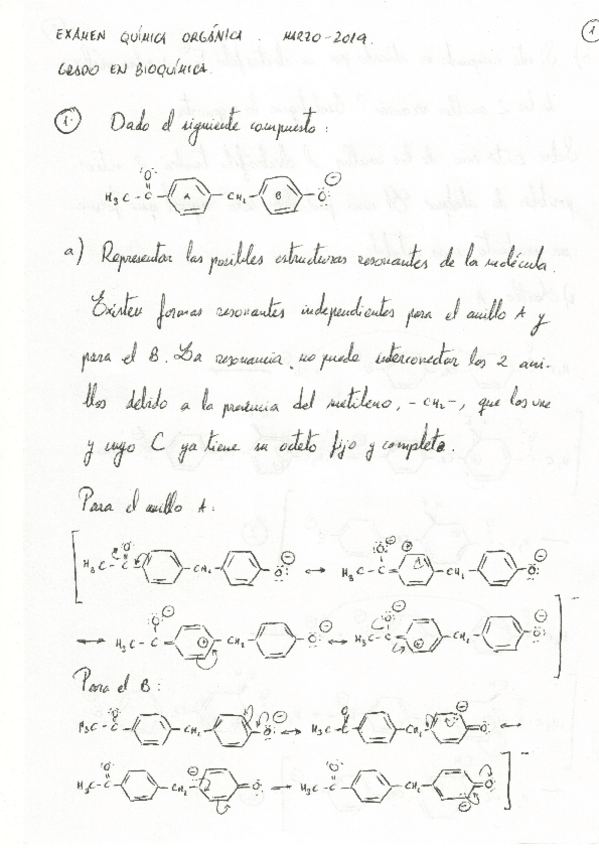 1
EXAMEN QUÍMICA ORGÁNICA. MARZO-2019.
GRADO EN BIOQUÍMICA.
1. Dado el siguiente compuesto:
:O:
H3C-C A CH2 B O: ⊖
a) Representar las posibles estructuras resonantes de la molécula.
Existen formas resonantes independientes para el anillo A y
para el B. La resonancia no puede interconectar los 2 ani-
llos debido a la presencia del metileno, -CH2-, que los une
y cuyo C ya tiene su octeto fijo y completo.
Para el anillo A:
H3C-C CH2 O: ⊖ ↔ H3C-C CH2 O: ⊖
↔ H3C-C CH2 O: ⊖ ↔ H3C-C CH2 O: ⊖
Para el B:
H3C-C CH2 O: ⊖ ↔ H3C-C CH2 O: ↔
H3C-C CH2 O: ↔ H3C-C CH2 O: